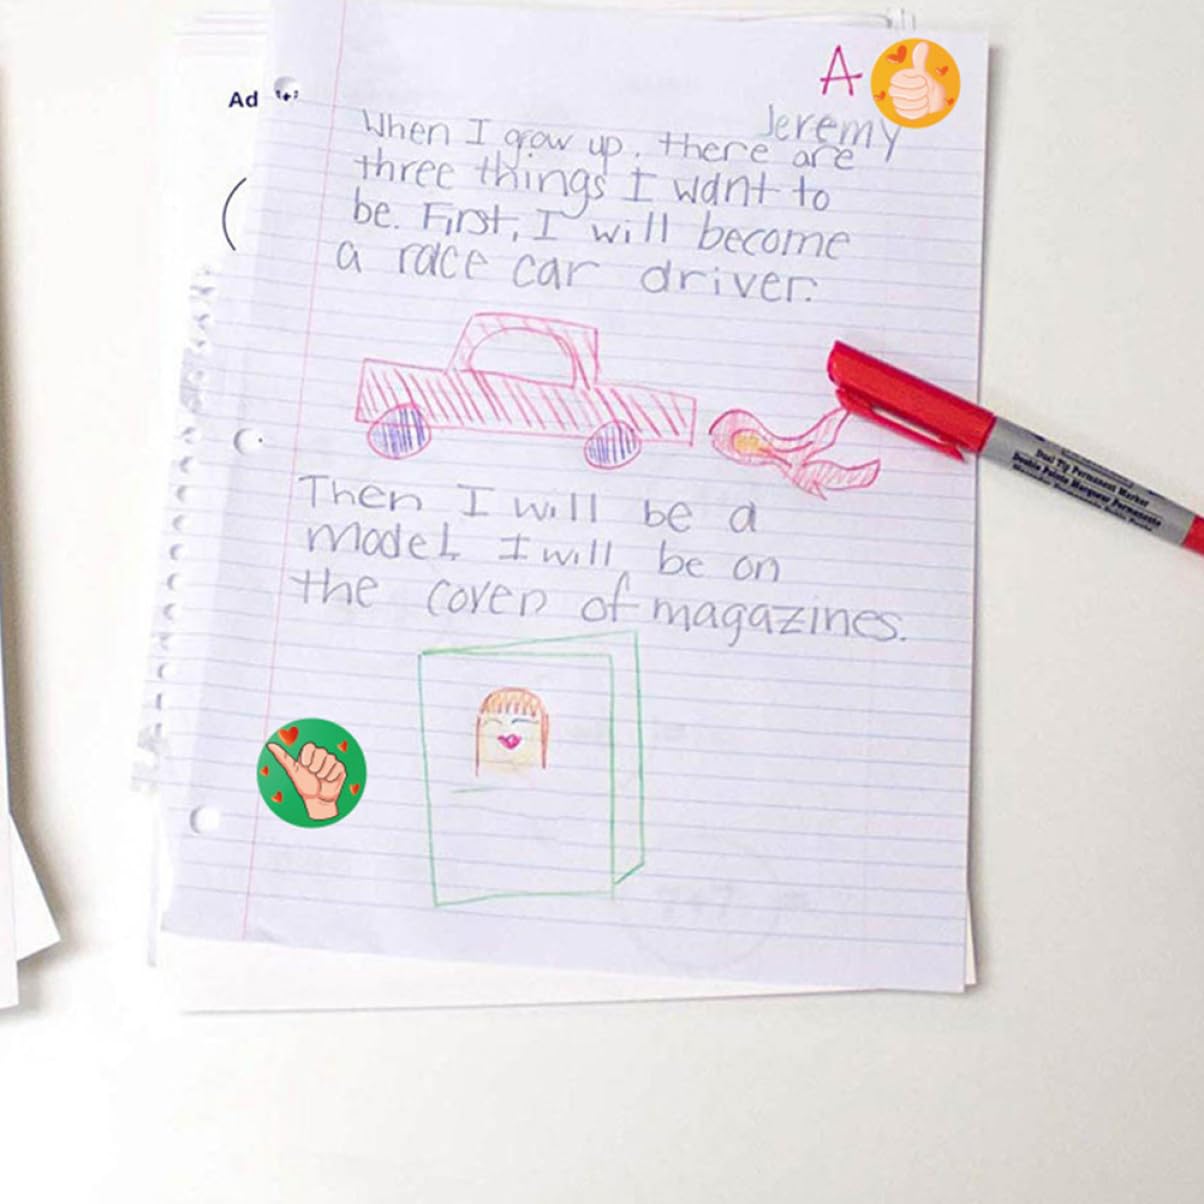 A
Jeremy
Ad
When I grow up, there are
three things I want to
be. First, I will become
a race car driver.
Then I will be a
model. I will be on
the cover of magazines.
Dual Tip Permanent Marker
Double Pointe Marqueur Permanente